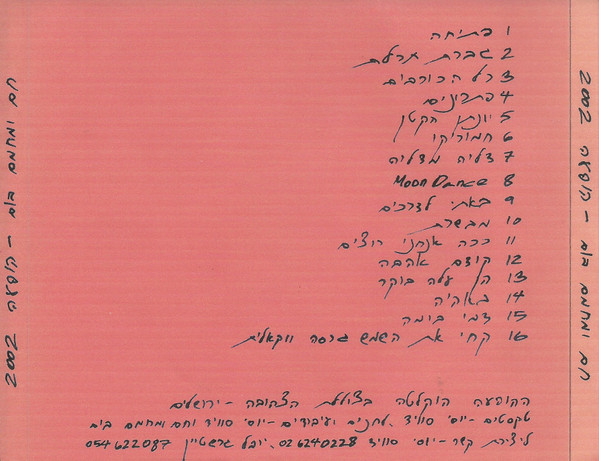 חם ומחמם בום - הופעה 2002
1 פתיחה
2 גברת
3 כל הכוכבים
4 פתרונים
5 יונתן הקטן
6 חמוריקו
7 דליה מדליה
8 Moon Dance
9 באתי
10 מבשרת
11 ככה אנחנו רוצים
12 קודם אהבה
13 עלה בוקר
14 באהיה
15 דמי בימה
16 קחי את השמש גרסה ווקאלית
ההופעה הוקלטה בצוללת הצהובה - ירושלים
טקסטים - יוסי סוויד. לחנים ועיבודים - יוסי סוויד וחם ומחמם בום
ליצירת קשר - יוסי סוויד 02 6240228. יובל גרשטיין 054 622087
חם ומחמם בום - הופעה 2002